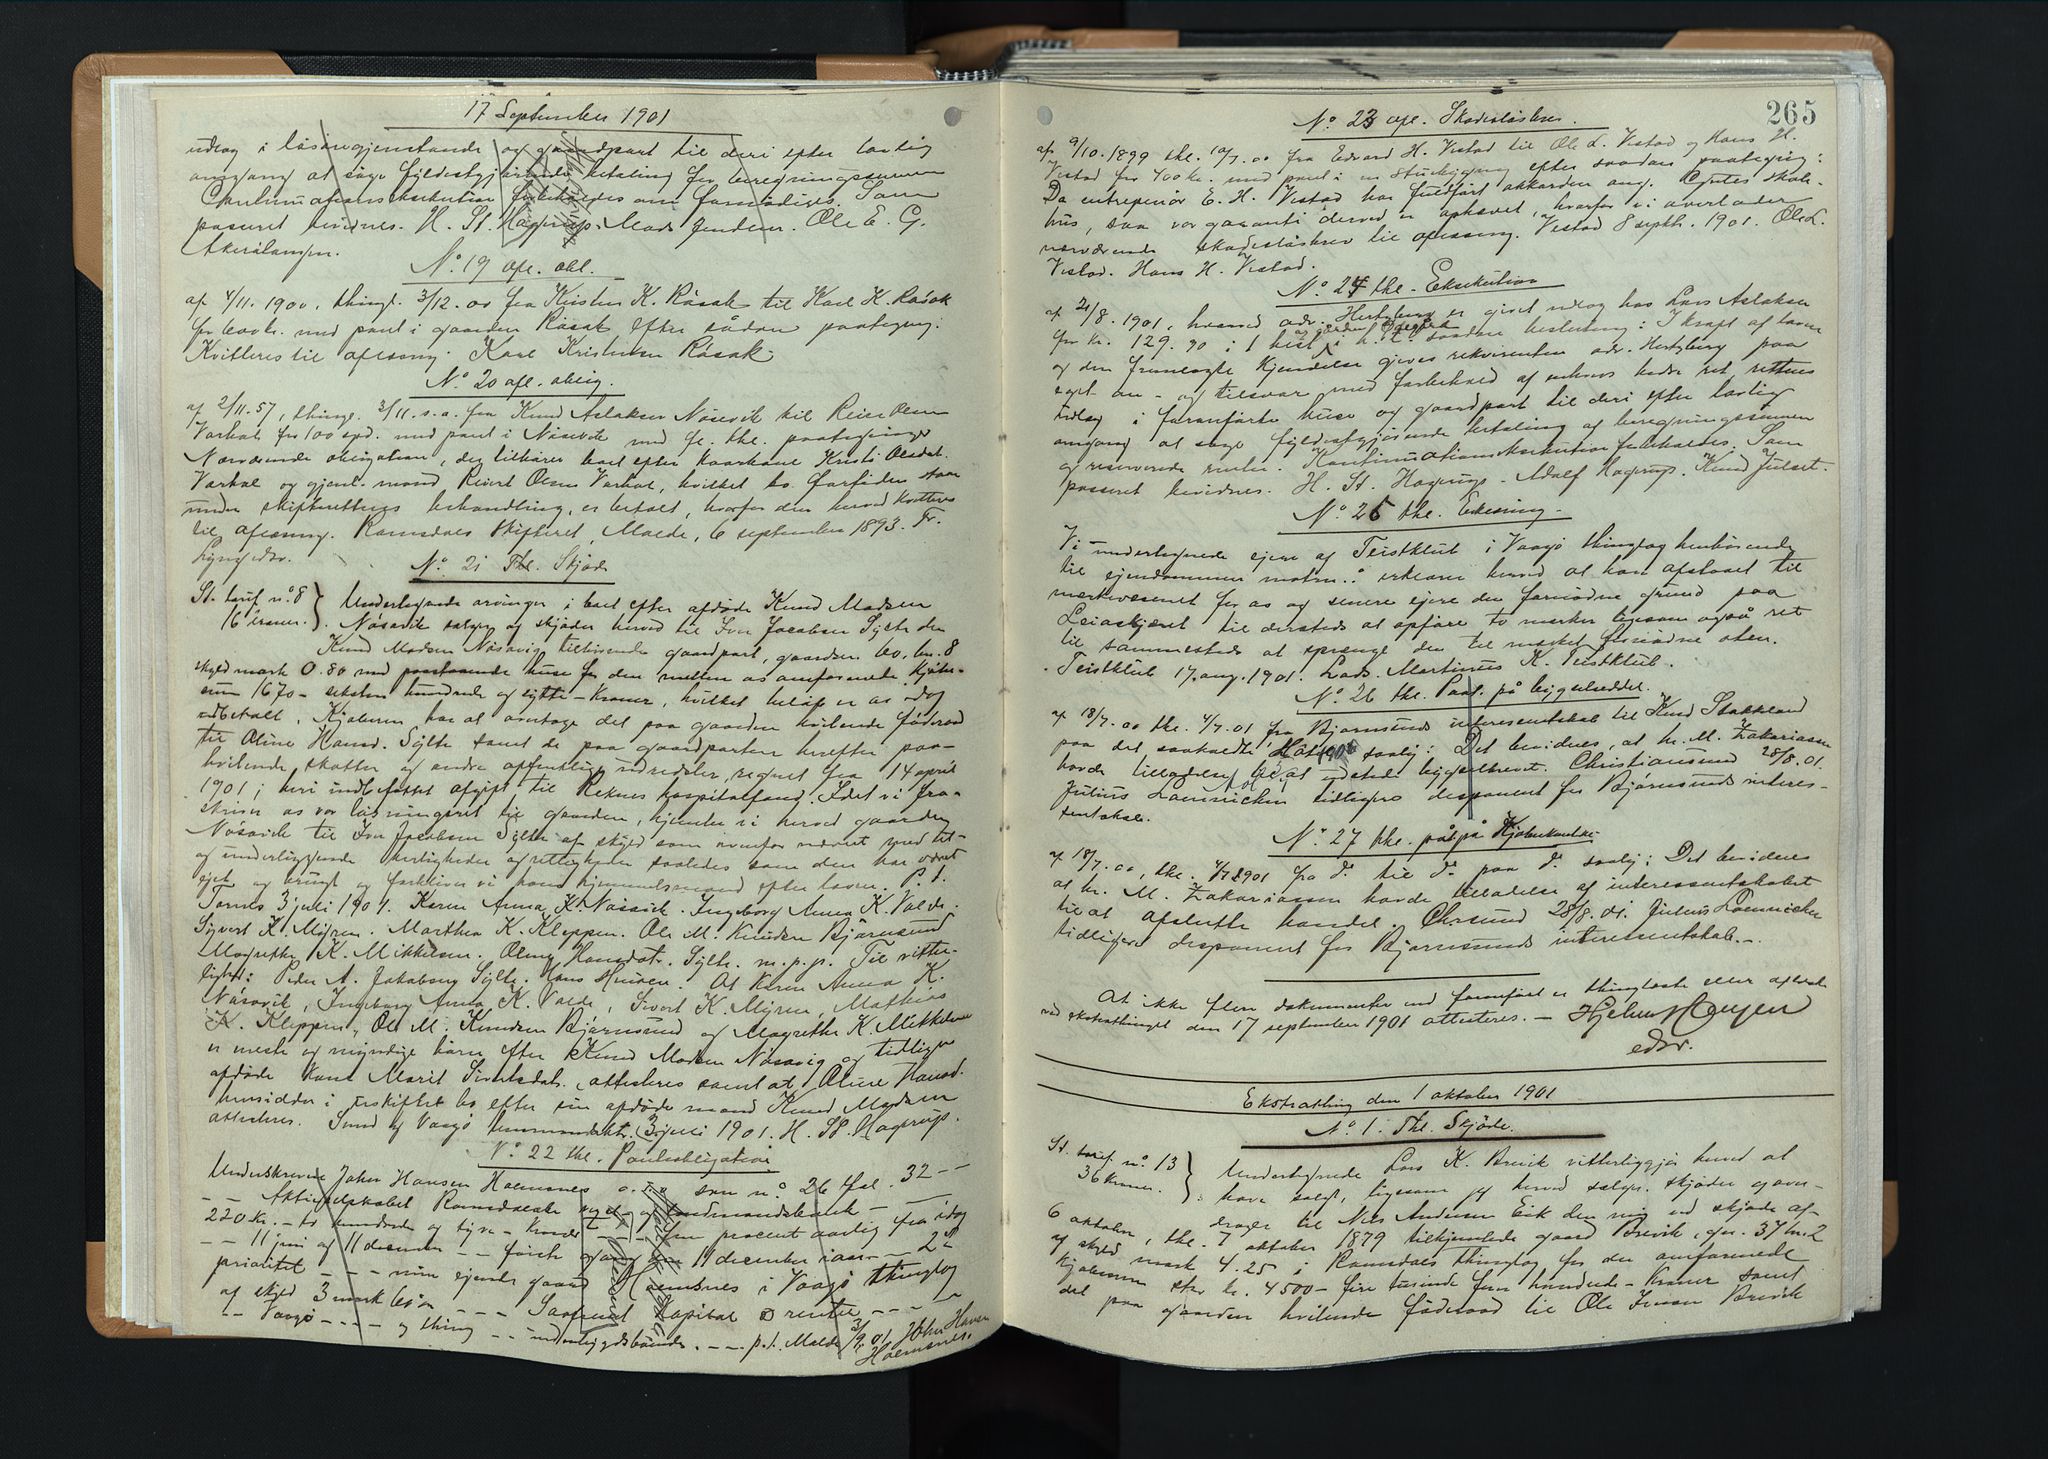 17 September 1901
udlæg i løsøregjenstande og gaardpart til deri efter lovlig
omgang at søge fyldestgjørende betaling for beregningssummen
Continuationsexekution forbeholdes om fornødiges. Saa
passeret bevidnes. H. St. Hagerup. Mads Jendem. Ole E. G.
Akerslangen.
No. 19 afl. obl.
af 4/11. 1900, thingl. 3/12. 00 fra Kristen K. Råsok til Karl K. Råsok
for kr. med pant i gaarden Råsok efter sådan paategng:
Kvitteres til aflæsng. Karl Kristensen Råsok
No. 20 afl. oblig.
af 2/11. 57, thingl. 3/11. s.a. fra Knud Aslaksen Nåsevik til Reier Olsen
Varhol for 100 spd. med pant i Nåsevik med fl. thl. paategninge
Nærværende obligation, der tilhører boet efter kaarkone Kristi Olsdat.
Varhol og gjenl. mand Reiert Olsen Varhol, hvilket bo forfinder staar
under skifterettens behandling, er betalt, hvorfor den herved kvitteres
til aflæsning. Romsdals skifteret, Molde, 6 september 1893. Fr.
Lyng edsv.
No. 21 Thl. Skjøde
St. tarif no. 8 } Undertegnede arvinger i boet efter afdøde Knud Madsen
16 kroner. } Nåsavik sælger og skjøder herved til Iver Jacobsen Sylte den
Knud Madsen Nåsavig tilhørende gaardpart, gaardsn. 60, bn. 8
skyld mark 0.80 med paastaaende huse for den mellem os omforenede kjøbe-
sum 1670 - seksten hundrede og sytti - Kroner, hvilket beløb er os idag
udbetalt. Kjøberen har at overtage det paa gaarden hvilende føderaad
til Oline Hansd. Sylte samt de paa gaardparten herefter paa-
hvilende skatter og andre offentlige udredsler, regnet fra 14 april
1901, heri indbefattet afgift til Reknes hospitalsfond. Idet vi fra-
skriver os vor løsningsret til gaarden, hjemler vi herved gaarden
Nåsavik til Iver Jacobsen Sylte af skyld som ovenfor nævnt med til-
og underliggende herligheder og rettigheder saaledes som den har været
eiet og brugt og forbliver vi hans hjemmelsmænd efter loven. P. t.
Tornes 3 juli 1901. Karen Anna K. Nåsavik. Ingeborg Anna K. Valde.
Sivert K. Myren. Marthea K. Kleppen. Ole M. Knudsen Bjørnsund
Magrethe K. Mikkelsen. Oline Hansdat. Sylte. m.p.p. Til vitter-
lighed: Peder A. Jakobsen Sylte. Hans Husøen. At Karen Anna K.
Nåsavik, Ingeborg Anna K. Valde, Sivert K. Myren, Mathias
K. Kleppen, Ole M. Knudsen Bjørnsund og Magrethe K. Mikkelsen
er neste og myndige børn efter Knud Madsen Nåsavig og tidligere
afdøde kone Marit Sivertsdat. attesteres samt at Oline Hansd.
hensidder i uskiftet bo efter sin afdøde mand Knud Madsen
attesteres. Sund og Vaagø lensmandsktr. 3 juli 1901. H. St. Hagerup.
No. 22 thl. Pantobligation
Underskrevne John Hansen Holmsnes o.s.v. som no. 26 fol. 32 - -
- - Aktieselskabet Romsdalske og landmandsbank -
220 kr. - to hundrede og tyve - Kroner - - - fem procent aarlig fra idag
- - 11 juni og 11 december - - første gang den 11 december iaar - - 2den
prioritet - - - min eiende gaard Holmsnes i Vaagø thinglag
af skyld 3 mark øre - - - Saafremt kapital & renter - - - -
- - Vaagø - - - - og thing - - indenbygdsboende. - - p. t. Molde 3/9. 01. John Hansen
Holmsnes.
265
No. 23 afl. Skadesløsbrev.
af 9/10. 1899 thl. 10/1. 00 fra Edvard H. Vestad til Ole L. Vestad og Hans H.
Vestad for 400 kr. med pant i en stuebygning efter saadan paategning:
Da entreprenør E. H. Vestad har fuldført akkorden ang. skole-
hus, saa vor garanti derved er ophævet, hvorfor vi overlader
nærværende skadesløsbrev til aflæsning. Vestad 8 septbr. 1901. Ole L.
Vestad. Hans H. Vestad.
No. 24 thl. Eksekution
af 21/8. 1901, hvorved adv. Hertzberg er givet udlæg hos Lars Aslaksen
for kr. 129.90 i 1 hest saadan beslutning: I kraft af loven
og den fremlagte kjendelse gives rekvirenten adv. Hertzberg paa
eget an- og tilsvar med forbehold af enhvers bedre ret, rettens
udlæg i foranførte huse og gaardpart til deri efter lovlig
omgang at søge fyldestgjørende betaling af beregningssummen
og reserverede renter. Kontinuationseksekution forbeholdes. Saa
passeret bevidnes. H. St. Hagerup. Adolf Hagerup. Knud Julset.
No. 25 thl. Erklæring.
Vi undertegnede eiere af Teistklub i Vaagø thinglag henhørende
til eiendommen matrn. erklærer herved at have afstaaet til
merkevæsenet for os og senere eiere den fornødne grund paa
Leiaskjæret til dersteds at opføre to merker ligesom også ret
til sammesteds at sprenge den til mærket fornødne sten.
Teistklub 17. aug. 1901. Lads. Martinus K. Teistklub.
No. 26 thl. Paat. på bygselseddel.
af 18/7. 00 thl. 4/7. 01 fra Bjørnsunds interessentskab til Knud Stokkeland
paa det saakaldte saalyd: Det bevidnes, at hr. M. Zakariassen
havde tilladelse til at udstede bygselbrevet. Christiansund 28/8. 01.
Julius Loennechen tidligere disponent for Bjørnsunds interes-
sentskab.
No. 27 thl. påt. på Kjøbekontrakt
af 18/7. 00, thl. 4/7 1901 fra do. til do. paa do. saalyd: Det bevidnes
at hr. M. Zakariassen havde tilladelse af interessentskabet
til at afslutte handel. Chrsund 28/8. 01. Julius Loennechen
tidligere disponent for Bjørnsunds interessentskab. -
At ikke flere dokumenter end foranført er thinglæste eller aflæste
ved ekstrathinget den 17 september 1901 attesteres. -
edsv.
Ekstrathing den 1 oktober 1901
No. 1. Thl. Skjøde.
St. tarif no. 13 } Undertegnede Lars K. Brevik vitterliggjør herved at
36 kroner. } have solgt, ligesom jeg herved sælger, skjøder og over-
drager til Nils Andersen Eik den mig ved skjøde af
6 oktober, thl. 7 oktober 1879 tilhjemlede gaard Brevik, gn. 37 bn. 2
af skyld mark 4.25 i Romsdals thinglag for den omforenede
kjøbesum stor kr. 4500 - fire tusinde fem hundrede - Kroner samt
det paa gaarden hvilende føderaad til Ole Iversen Brevik